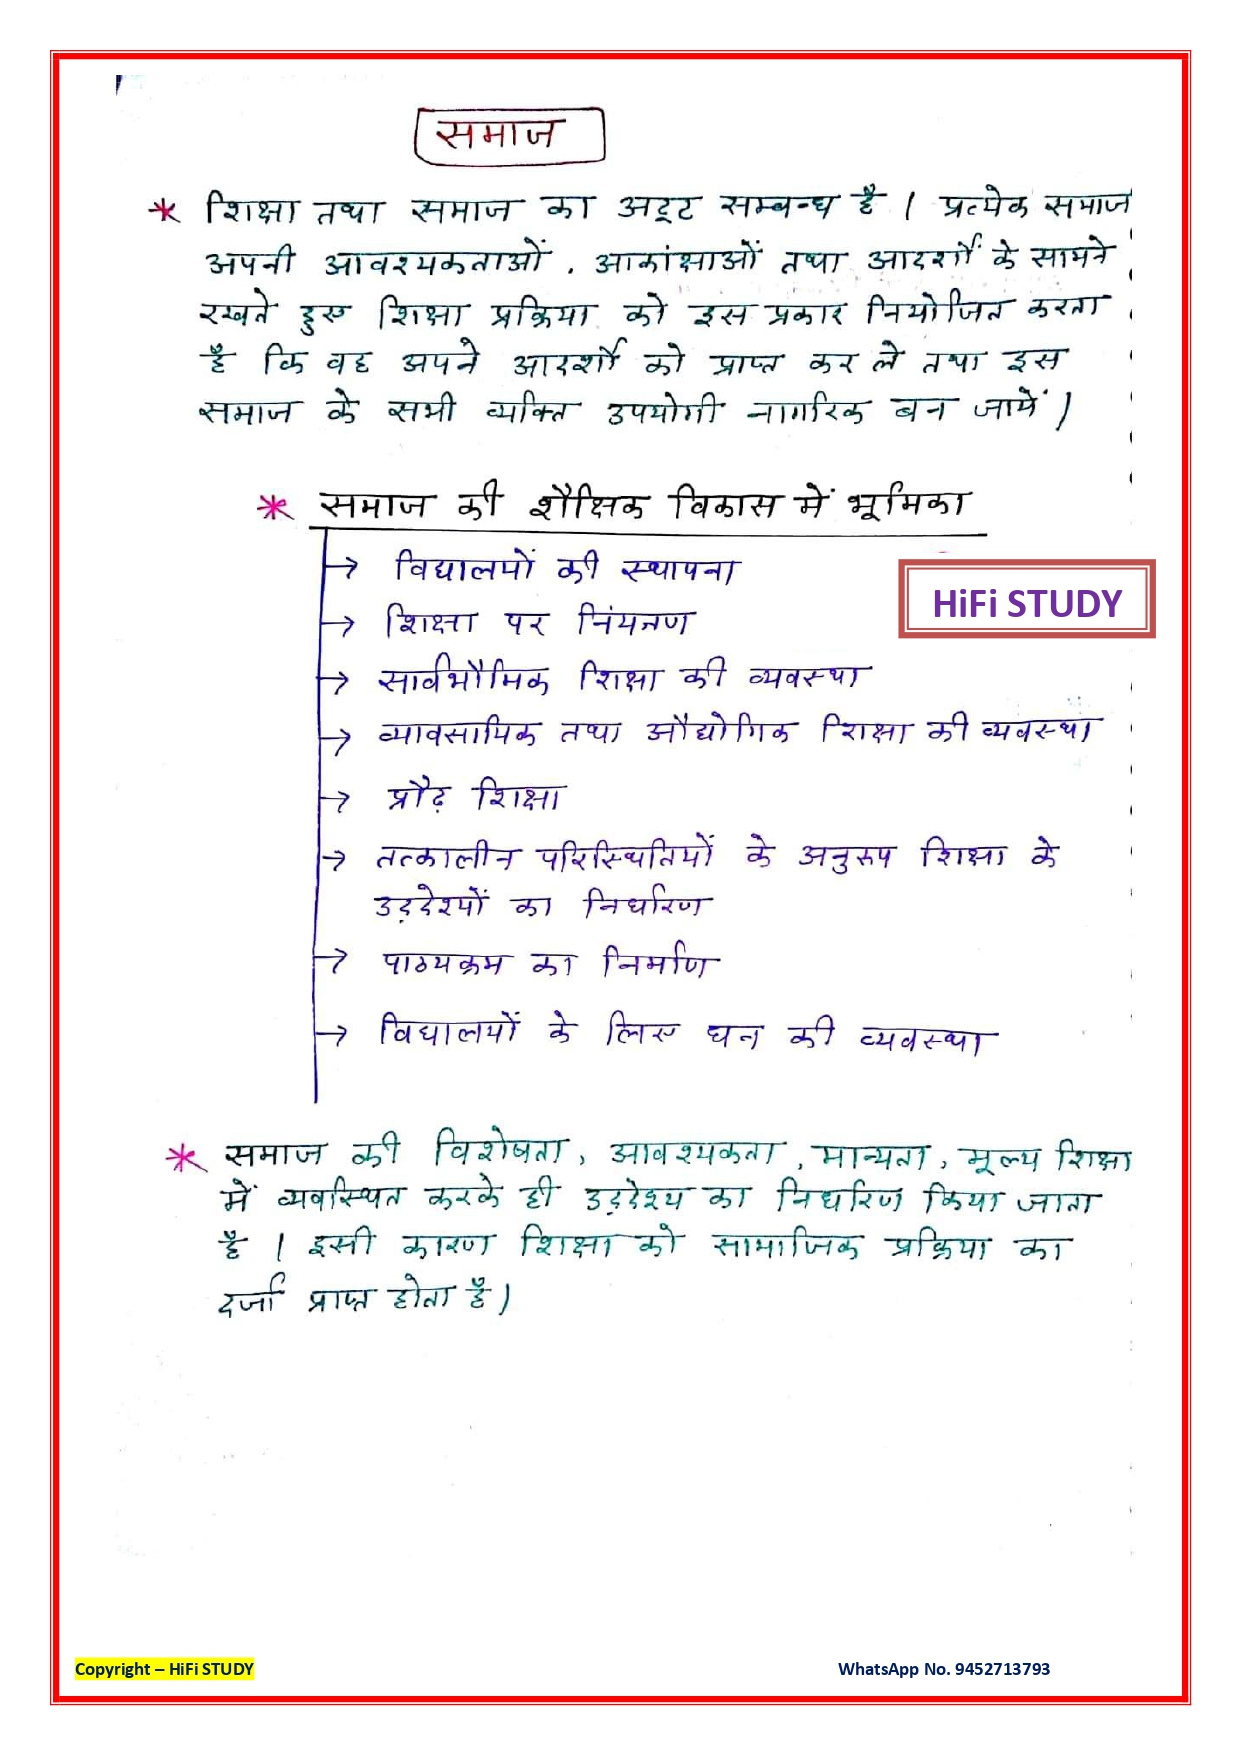 समाज
* शिक्षा तथा समाज का अटूट सम्बन्ध है। प्रत्येक समाज
अपनी आवश्यकताओं, आकांक्षाओं तथा आदर्शों के सामने
रखते हुए शिक्षा प्रक्रिया को इस प्रकार नियोजित करता
है कि वह अपने आदर्शों को प्राप्त कर ले तथा इस
समाज के सभी व्यक्ति उपयोगी नागरिक बन जायें।
* समाज की शैक्षिक विकास में भूमिका
→ विद्यालयों की स्थापना
HiFi STUDY
→ शिक्षा पर नियंत्रण
→ सार्वभौमिक शिक्षा की व्यवस्था
→ व्यावसायिक तथा औद्योगिक शिक्षा की व्यवस्था
→ प्रौढ़ शिक्षा
→ तत्कालीन परिस्थितियों के अनुरूप शिक्षा के
उद्देश्यों का निर्धारण
→ पाठ्यक्रम का निर्माण
→ विद्यालयों के लिए धन की व्यवस्था
* समाज की विशेषता, आवश्यकता, मान्यता, मूल्य शिक्षा
में व्यवस्थित करके ही उद्देश्य का निर्धारण किया जाता
है। इसी कारण शिक्षा को सामाजिक प्रक्रिया का
दर्जा प्राप्त होता है।
Copyright – HiFi STUDY
WhatsApp No. 9452713793